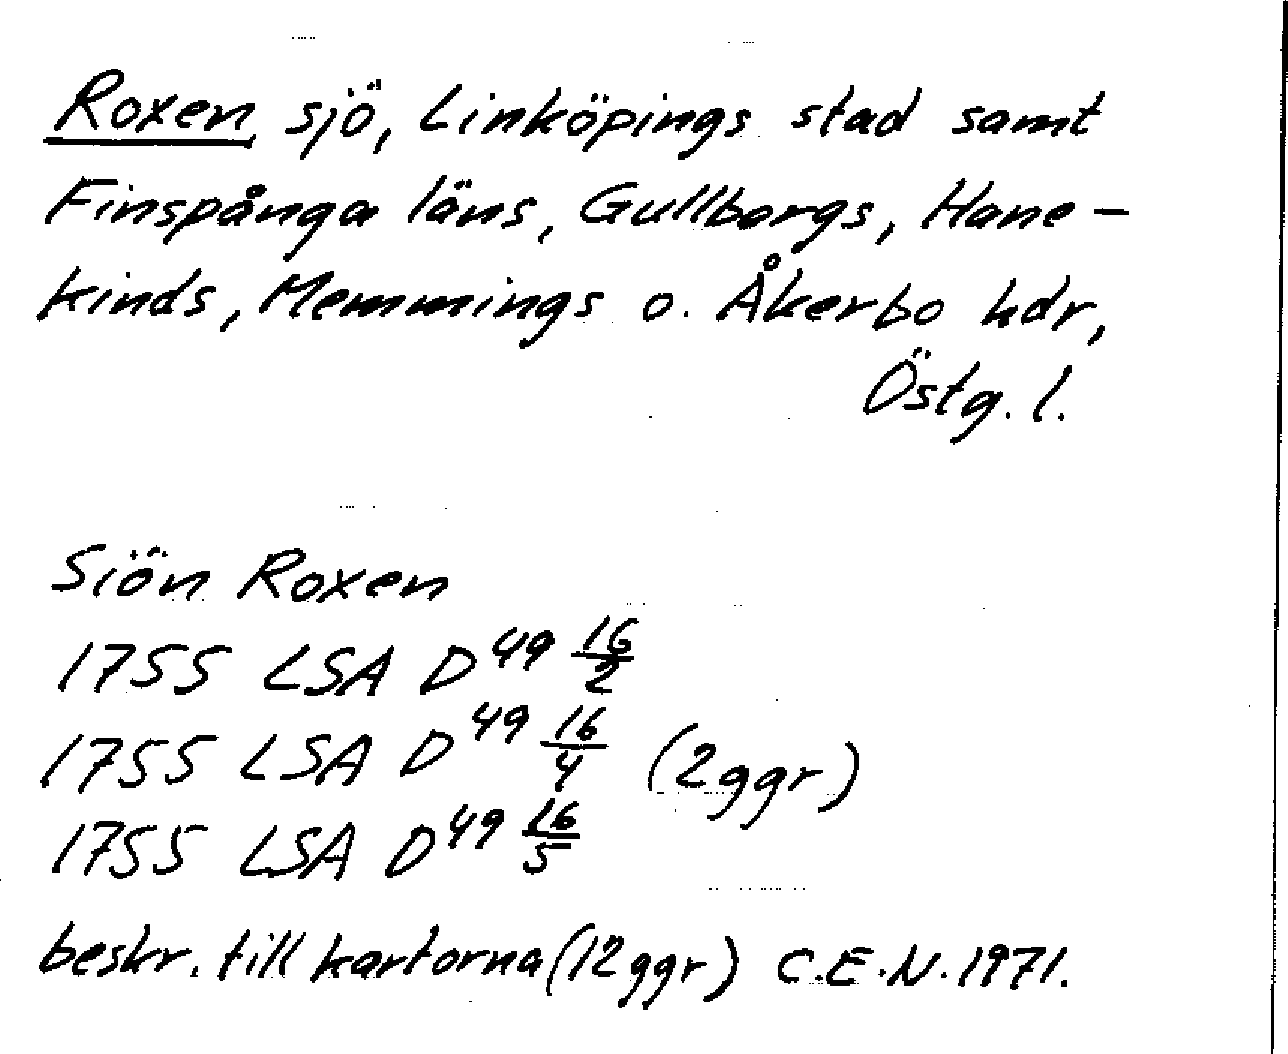 Roxen, sjö, Linköpings stad samt
Finspånga läns, Gullbergs, Hane-
kinds, Memmings o. Åkerbo hdr,
Östg. l.
Siön Roxen
1755 LSA D⁴⁹ 16/2
1755 LSA D⁴⁹ 16/4 (2ggr)
1755 LSA D⁴⁹ 16/5
beskr. till kartorna (12ggr) C.E.N. 1971.